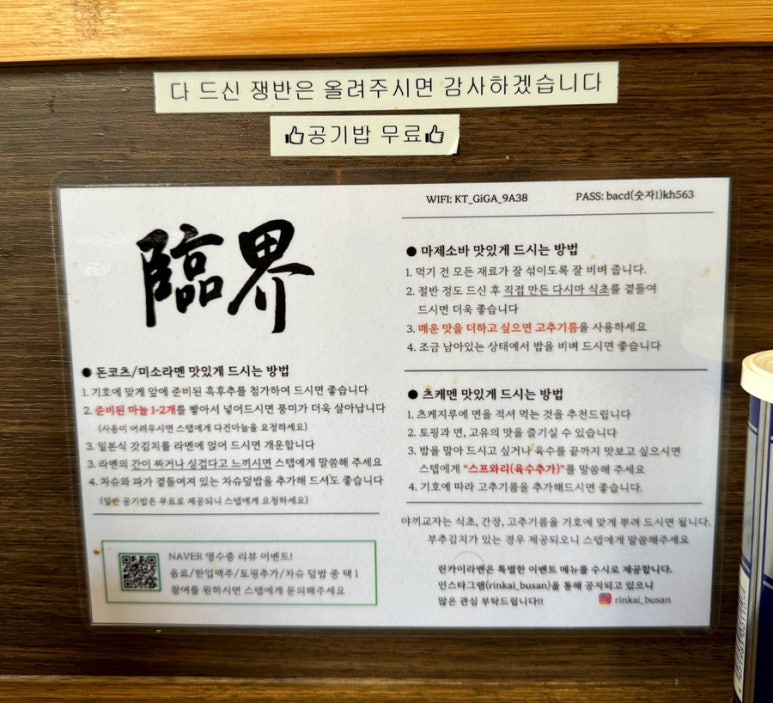 다 드신 쟁반은 올려주시면 감사하겠습니다
👍공기밥 무료👍
臨界
● 돈코츠/미소라멘 맛있게 드시는 방법
1. 기호에 맞게 앞에 준비된 흑후추를 첨가하여 드시면 좋습니다
2. 준비된 마늘 1-2개를 빻아서 넣어드시면 풍미가 더욱 살아납니다
(사용이 어려우시면 스텝에게 다진마늘을 요청하세요)
3. 일본식 갓김치를 라멘에 얹어 드시면 개운합니다
3. 라멘의 간이 짜거나 싱겁다고 느끼시면 스텝에게 말씀해 주세요
4. 차슈와 파가 곁들여져 있는 차슈덮밥을 추가해 드셔도 좋습니다
(일반 공기밥은 무료로 제공되니 스텝에게 요청하세요)
NAVER 영수증 리뷰 이벤트!
음료/한입맥주/토핑추가/차슈 덮밥 중 택1
참여를 원하시면 스텝에게 문의해주세요
WIFI: KT_GiGA_9A38 PASS: bacd(숫자1)kh563
● 마제소바 맛있게 드시는 방법
1. 먹기 전 모든 재료가 잘 섞이도록 잘 비벼 줍니다.
2. 절반 정도 드신 후 직접 만든 다시마 식초를 곁들여
드시면 더욱 좋습니다
3. 매운 맛을 더하고 싶으면 고추기름을 사용하세요
4. 조금 남아있는 상태에서 밥을 비벼 드시면 좋습니다
● 츠케멘 맛있게 드시는 방법
1. 츠케지루에 면을 적셔 먹는 것을 추천드립니다
2. 토핑과 면, 고유의 맛을 즐기실 수 있습니다
3. 밥을 말아 드시고 싶거나 육수를 끝까지 맛보고 싶으시면
스텝에게 "스프와리(육수추가)"를 말씀해 주세요
4. 기호에 따라 고추기름을 추가해드시면 좋습니다.
야끼교자는 식초, 간장, 고추기름을 기호에 맞게 뿌려 드시면 됩니다.
부추김치가 있는 경우 제공되오니 스텝에게 말씀해주세요
린카이라멘은 특별한 이벤트 메뉴를 수시로 제공합니다.
인스타그램(rinkai_busan)을 통해 공지되고 있으니
많은 관심 부탁드립니다!!
rinkai_busan